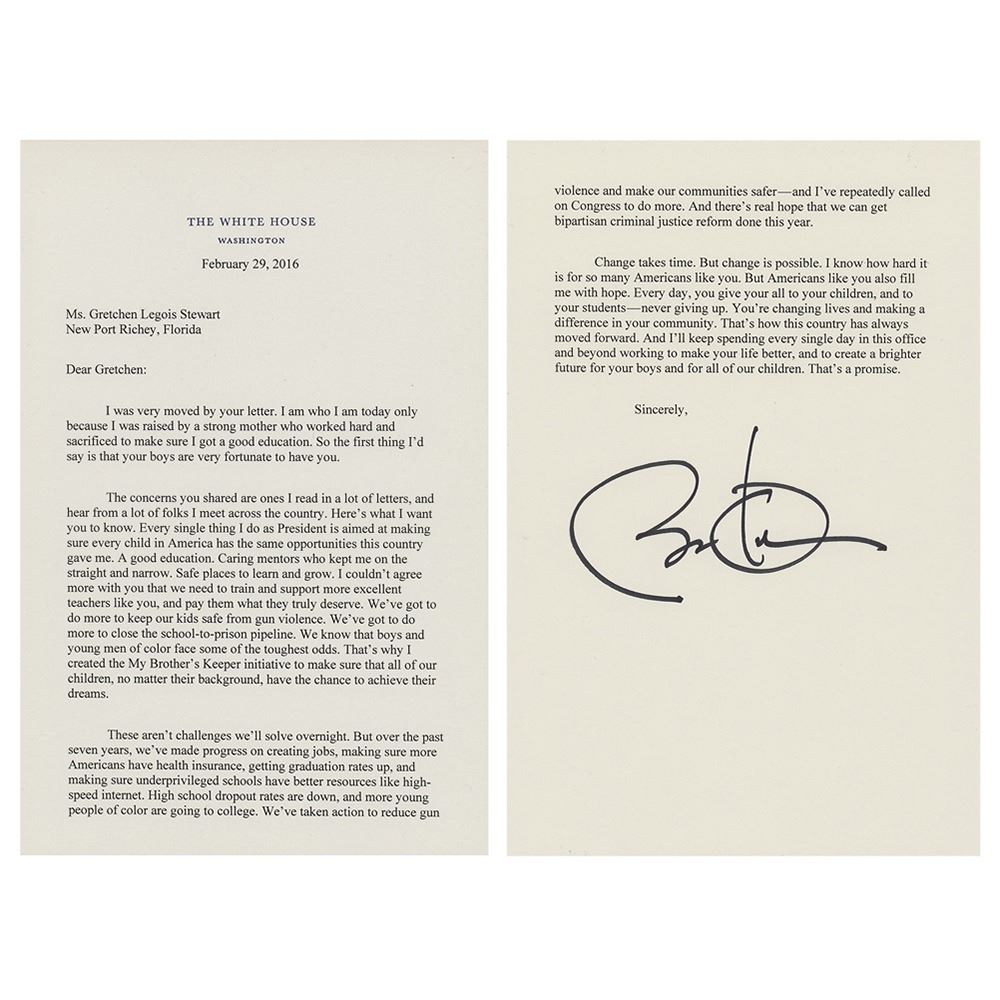 THE WHITE HOUSE
WASHINGTON
February 29, 2016
Ms. Gretchen Legois Stewart
New Port Richey, Florida
Dear Gretchen:
I was very moved by your letter. I am who I am today only
because I was raised by a strong mother who worked hard and
sacrificed to make sure I got a good education. So the first thing I'd
say is that your boys are very fortunate to have you.
The concerns you shared are ones I read in a lot of letters, and
hear from a lot of folks I meet across the country. Here's what I want
you to know. Every single thing I do as President is aimed at making
sure every child in America has the same opportunities this country
gave me. A good education. Caring mentors who kept me on the
straight and narrow. Safe places to learn and grow. I couldn't agree
more with you that we need to train and support more excellent
teachers like you, and pay them what they truly deserve. We've got to
do more to keep our kids safe from gun violence. We've got to do
more to close the school-to-prison pipeline. We know that boys and
young men of color face some of the toughest odds. That's why I
created the My Brother's Keeper initiative to make sure that all of our
children, no matter their background, have the chance to achieve their
dreams.
These aren't challenges we'll solve overnight. But over the past
seven years, we've made progress on creating jobs, making sure more
Americans have health insurance, getting graduation rates up, and
making sure underprivileged schools have better resources like high-
speed internet. High school dropout rates are down, and more young
people of color are going to college. We've taken action to reduce gun
violence and make our communities safer—and I've repeatedly called
on Congress to do more. And there's real hope that we can get
bipartisan criminal justice reform done this year.
Change takes time. But change is possible. I know how hard it
is for so many Americans like you. But Americans like you also fill
me with hope. Every day, you give your all to your children, and to
your students—never giving up. You're changing lives and making a
difference in your community. That's how this country has always
moved forward. And I'll keep spending every single day in this office
and beyond working to make your life better, and to create a brighter
future for your boys and for all of our children. That's a promise.
Sincerely,